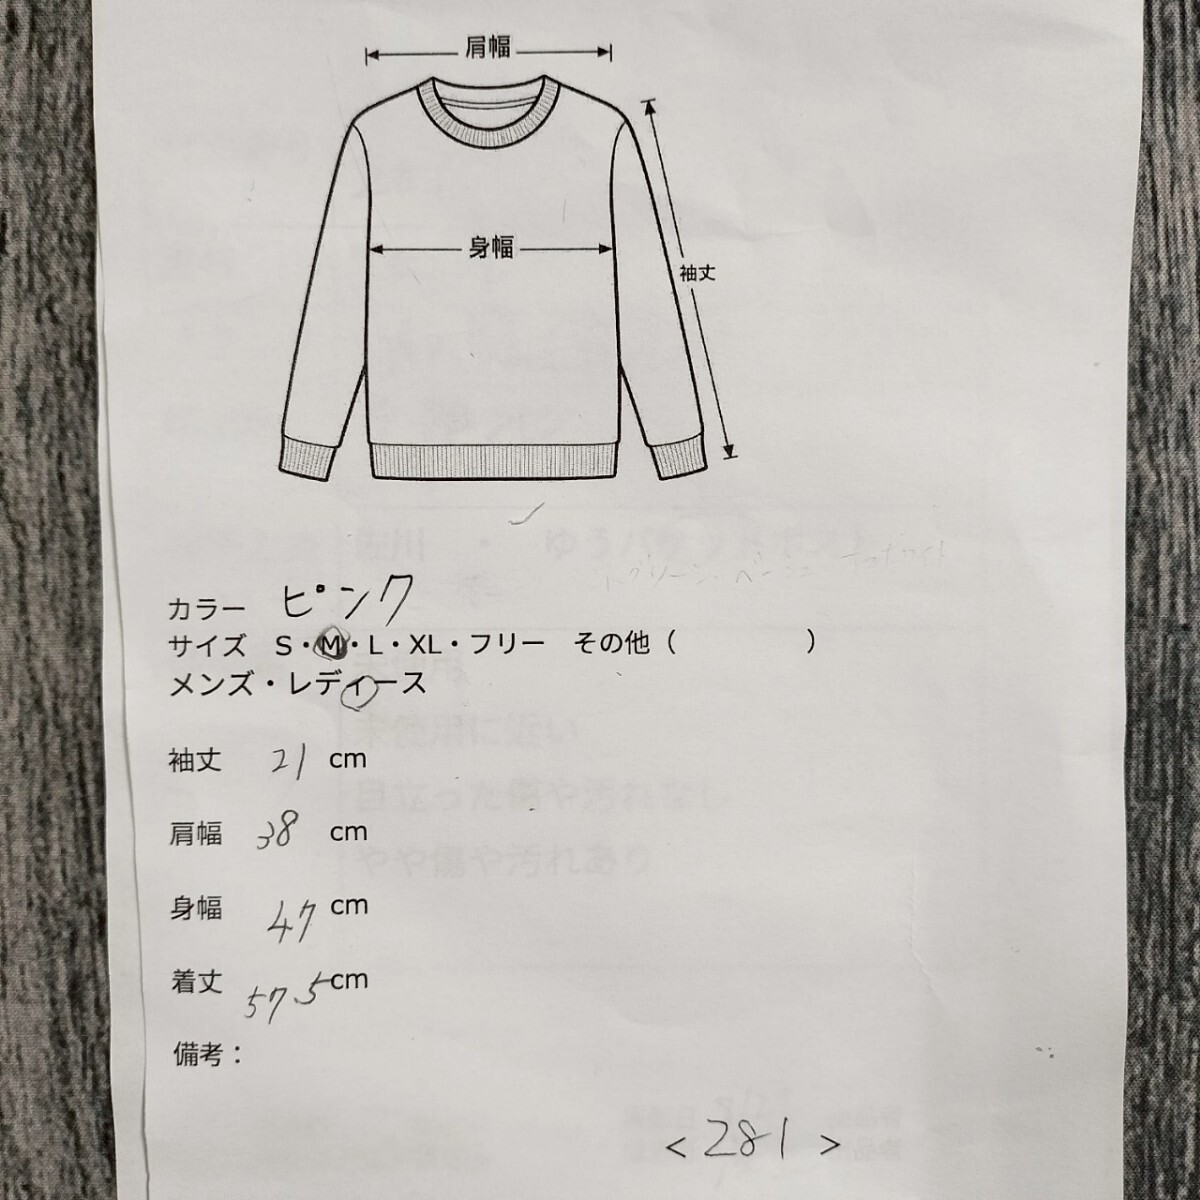 肩幅
身幅
袖丈
カラー ピンク
サイズ S・M・L・XL・フリー その他（ ）
メンズ・レディース
袖丈 21 cm
肩幅 38 cm
身幅 47 cm
着丈 57.5 cm
備考：
<281>